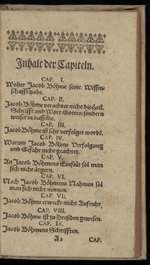 Inhalt der Capiteln.
CAP. I.
Woher Jacob Böhme seine Wissen-
schafft habe.
CAP. II.
Jacob Böhme verachtet nicht die heil.
Schrifft und Wort Gottes, sondern
weiset zu dasselbe.
CAP. III.
Jacob Böhme ist sehr verfolget word.
CAP. IV.
Warum Jacob Böhme Verfolgung
und Gefahr nicht geachtet.
CAP. V.
An Jacob Böhmens Einfalt sol man
sich nicht ärgern.
CAP. VI.
Nach Jacob Böhmens Nahmen sol
man sich nicht nennen.
CAP. VII.
Jacob Böhme erweckt nicht Aufruhr.
CAP. VIII.
Jacob Böhme ist zu Dreßden gewesen.
CAP. IX.
Jacob Böhmens Schrifften.
A2 CAP.